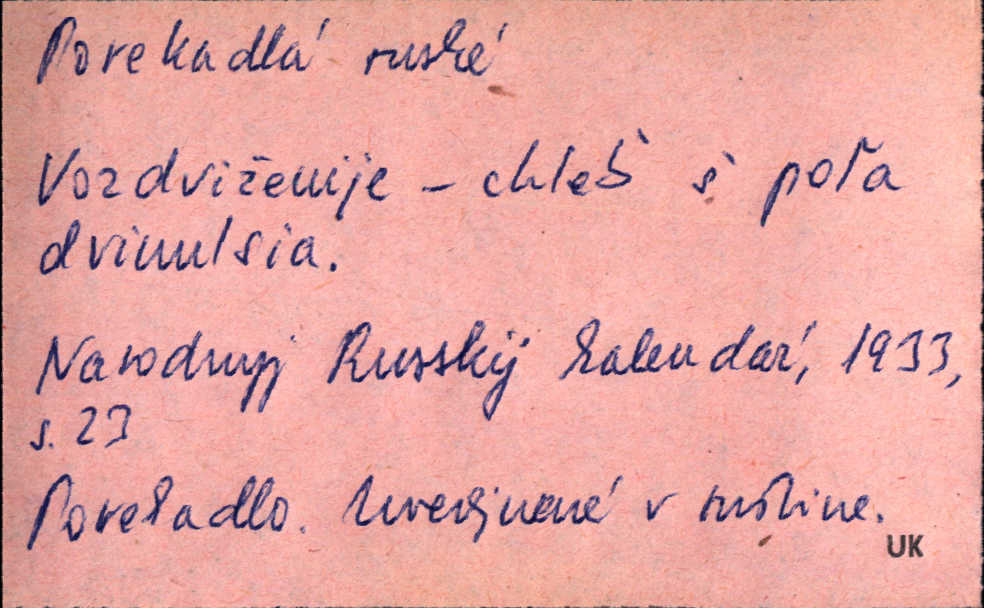 Porekadlá ruské
Vozdviženije – chleb s poľa
dvinulsia.
Narodnyj Russkij kalendar', 1933,
s. 23
Porekadlo. Uverejnené v ruštine.
UK